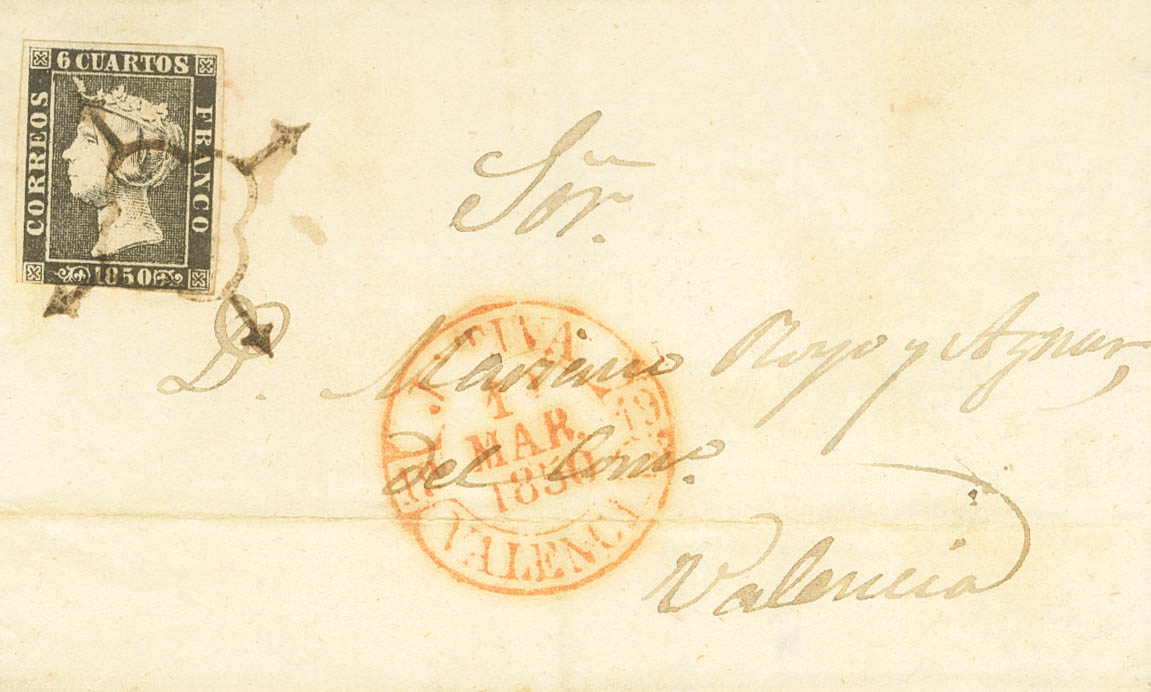 6 CUARTOS
CORREOS
FRANCO
1850
Sor.
D. Mariano Royo y Aznar,
del Com.º
Valencia
JATIVA
MAR.
1850
VALENCIA